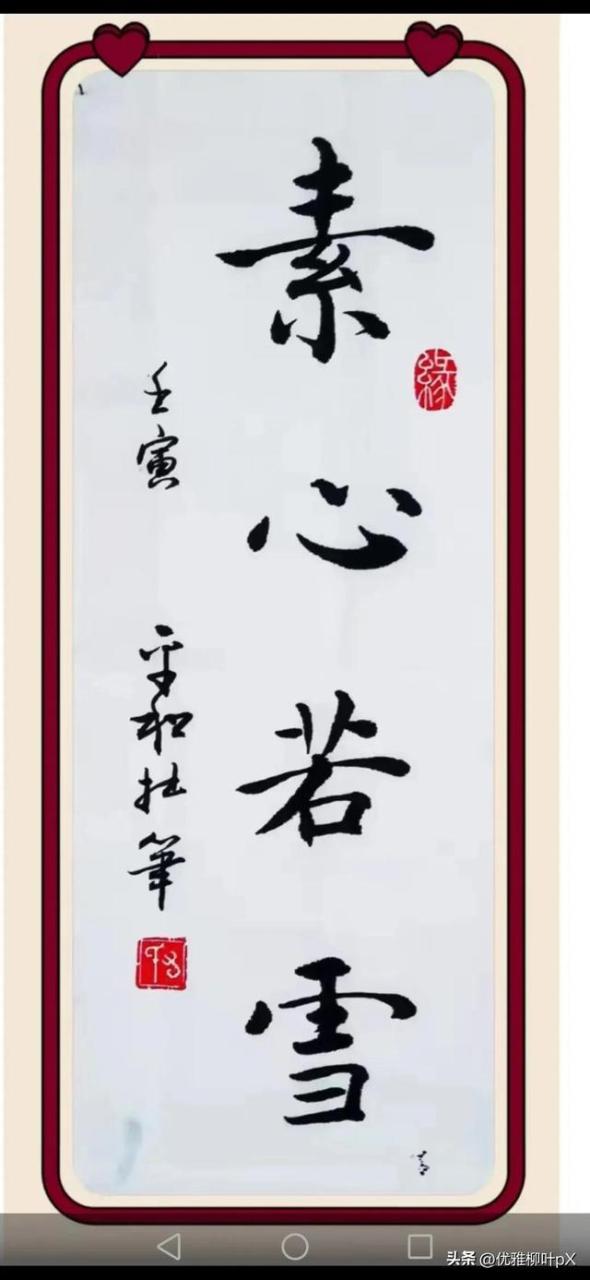 素心若雪
緣
壬寅
平和拙筆
头条 @优雅柳叶pX